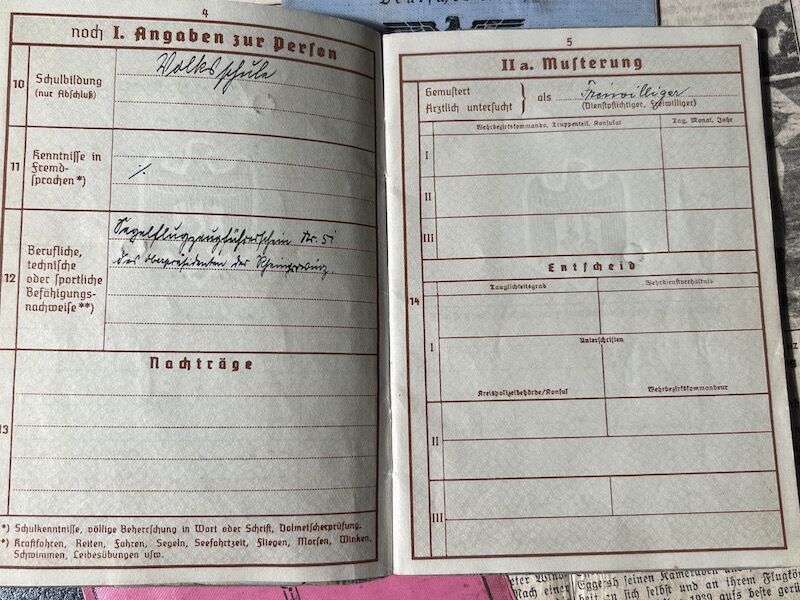 Deutsches
4
noch I. Angaben zur Person
10
Schulbildung
(nur Abschluß)
Volksschule
11
Kenntnisse in
Fremd-
sprachen*)
./.
12
Berufliche,
technische
oder sportliche
Befähigungs-
nachweise**)
Segelflugzeugführerschein Nr. 51
des Oberpräsidenten der Rheinprovinz
Nachträge
13
*) Schulkenntnisse, völlige Beherrschung in Wort oder Schrift, Dolmetscherprüfung.
*) Kraftfahren, Reiten, Fahren, Segeln, Seefahrtzeit, Fliegen, Morsen, Winken,
Schwimmen, Leibesübungen usw.
5
II a. Musterung
Gemustert
Ärztlich untersucht
als Freiwilliger
(Dienstpflichtiger, Freiwilliger)
Wehrbezirkskommando, Truppenteil, Konsulat
Tag, Monat, Jahr
I
II
III
Entscheid
14
Tauglichkeitsgrad
Wehrdienstverhältnis
I
Unterschriften
Kreispolizeibehörde/Konsul
Wehrbezirkskommandeur
II
III
Nach einer
Eggersh seinen Kameraden und
sich selbst und an ihrem Flugkön
1939 aufs beste gerü